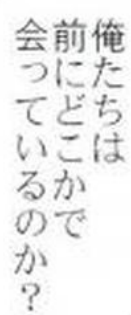 俺たちは
前にどこかで
会っているのか？